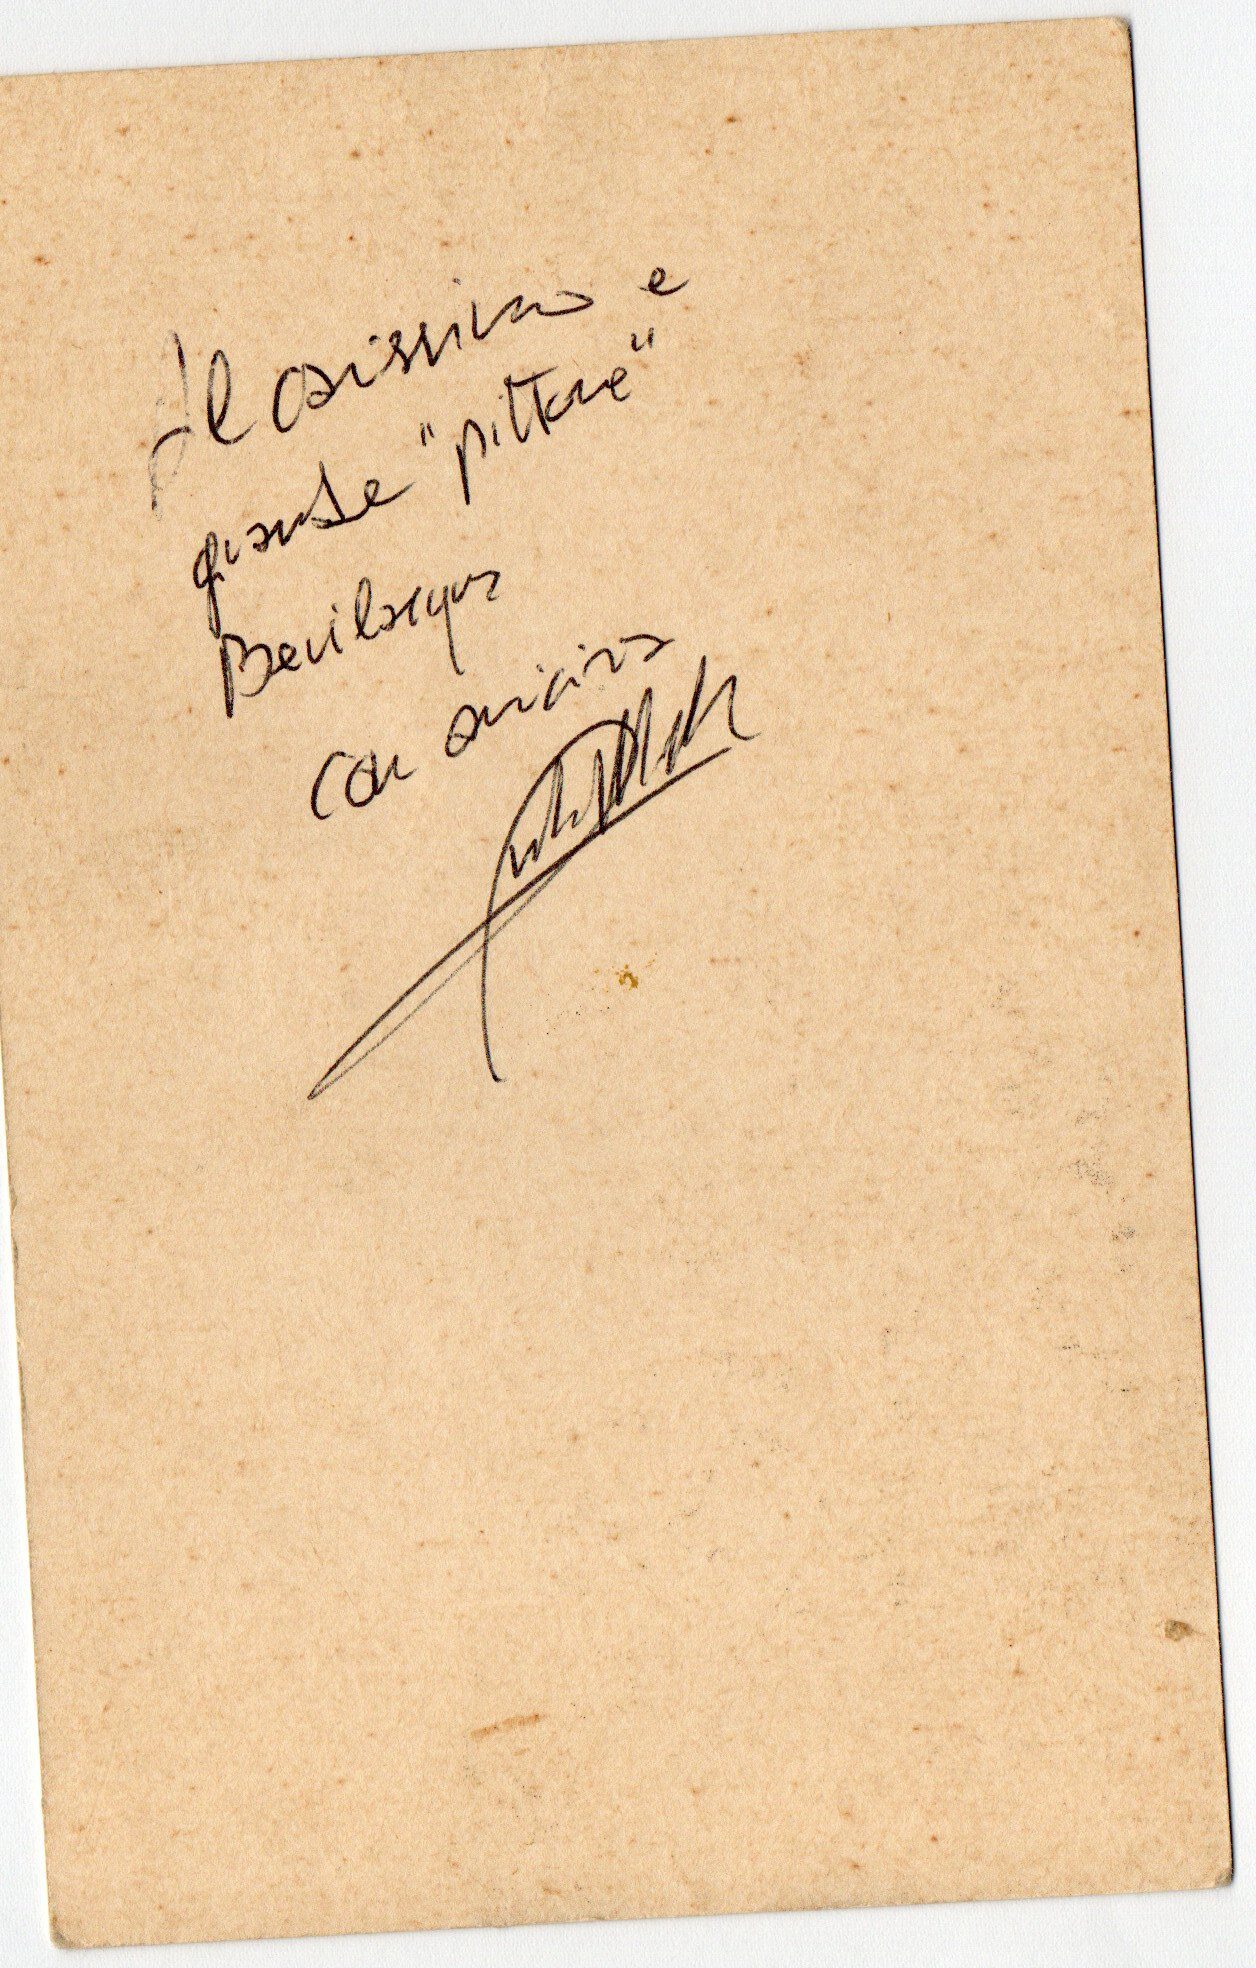 Al carissimo e
grande "pittore"
Bevilacqua
con amicizia